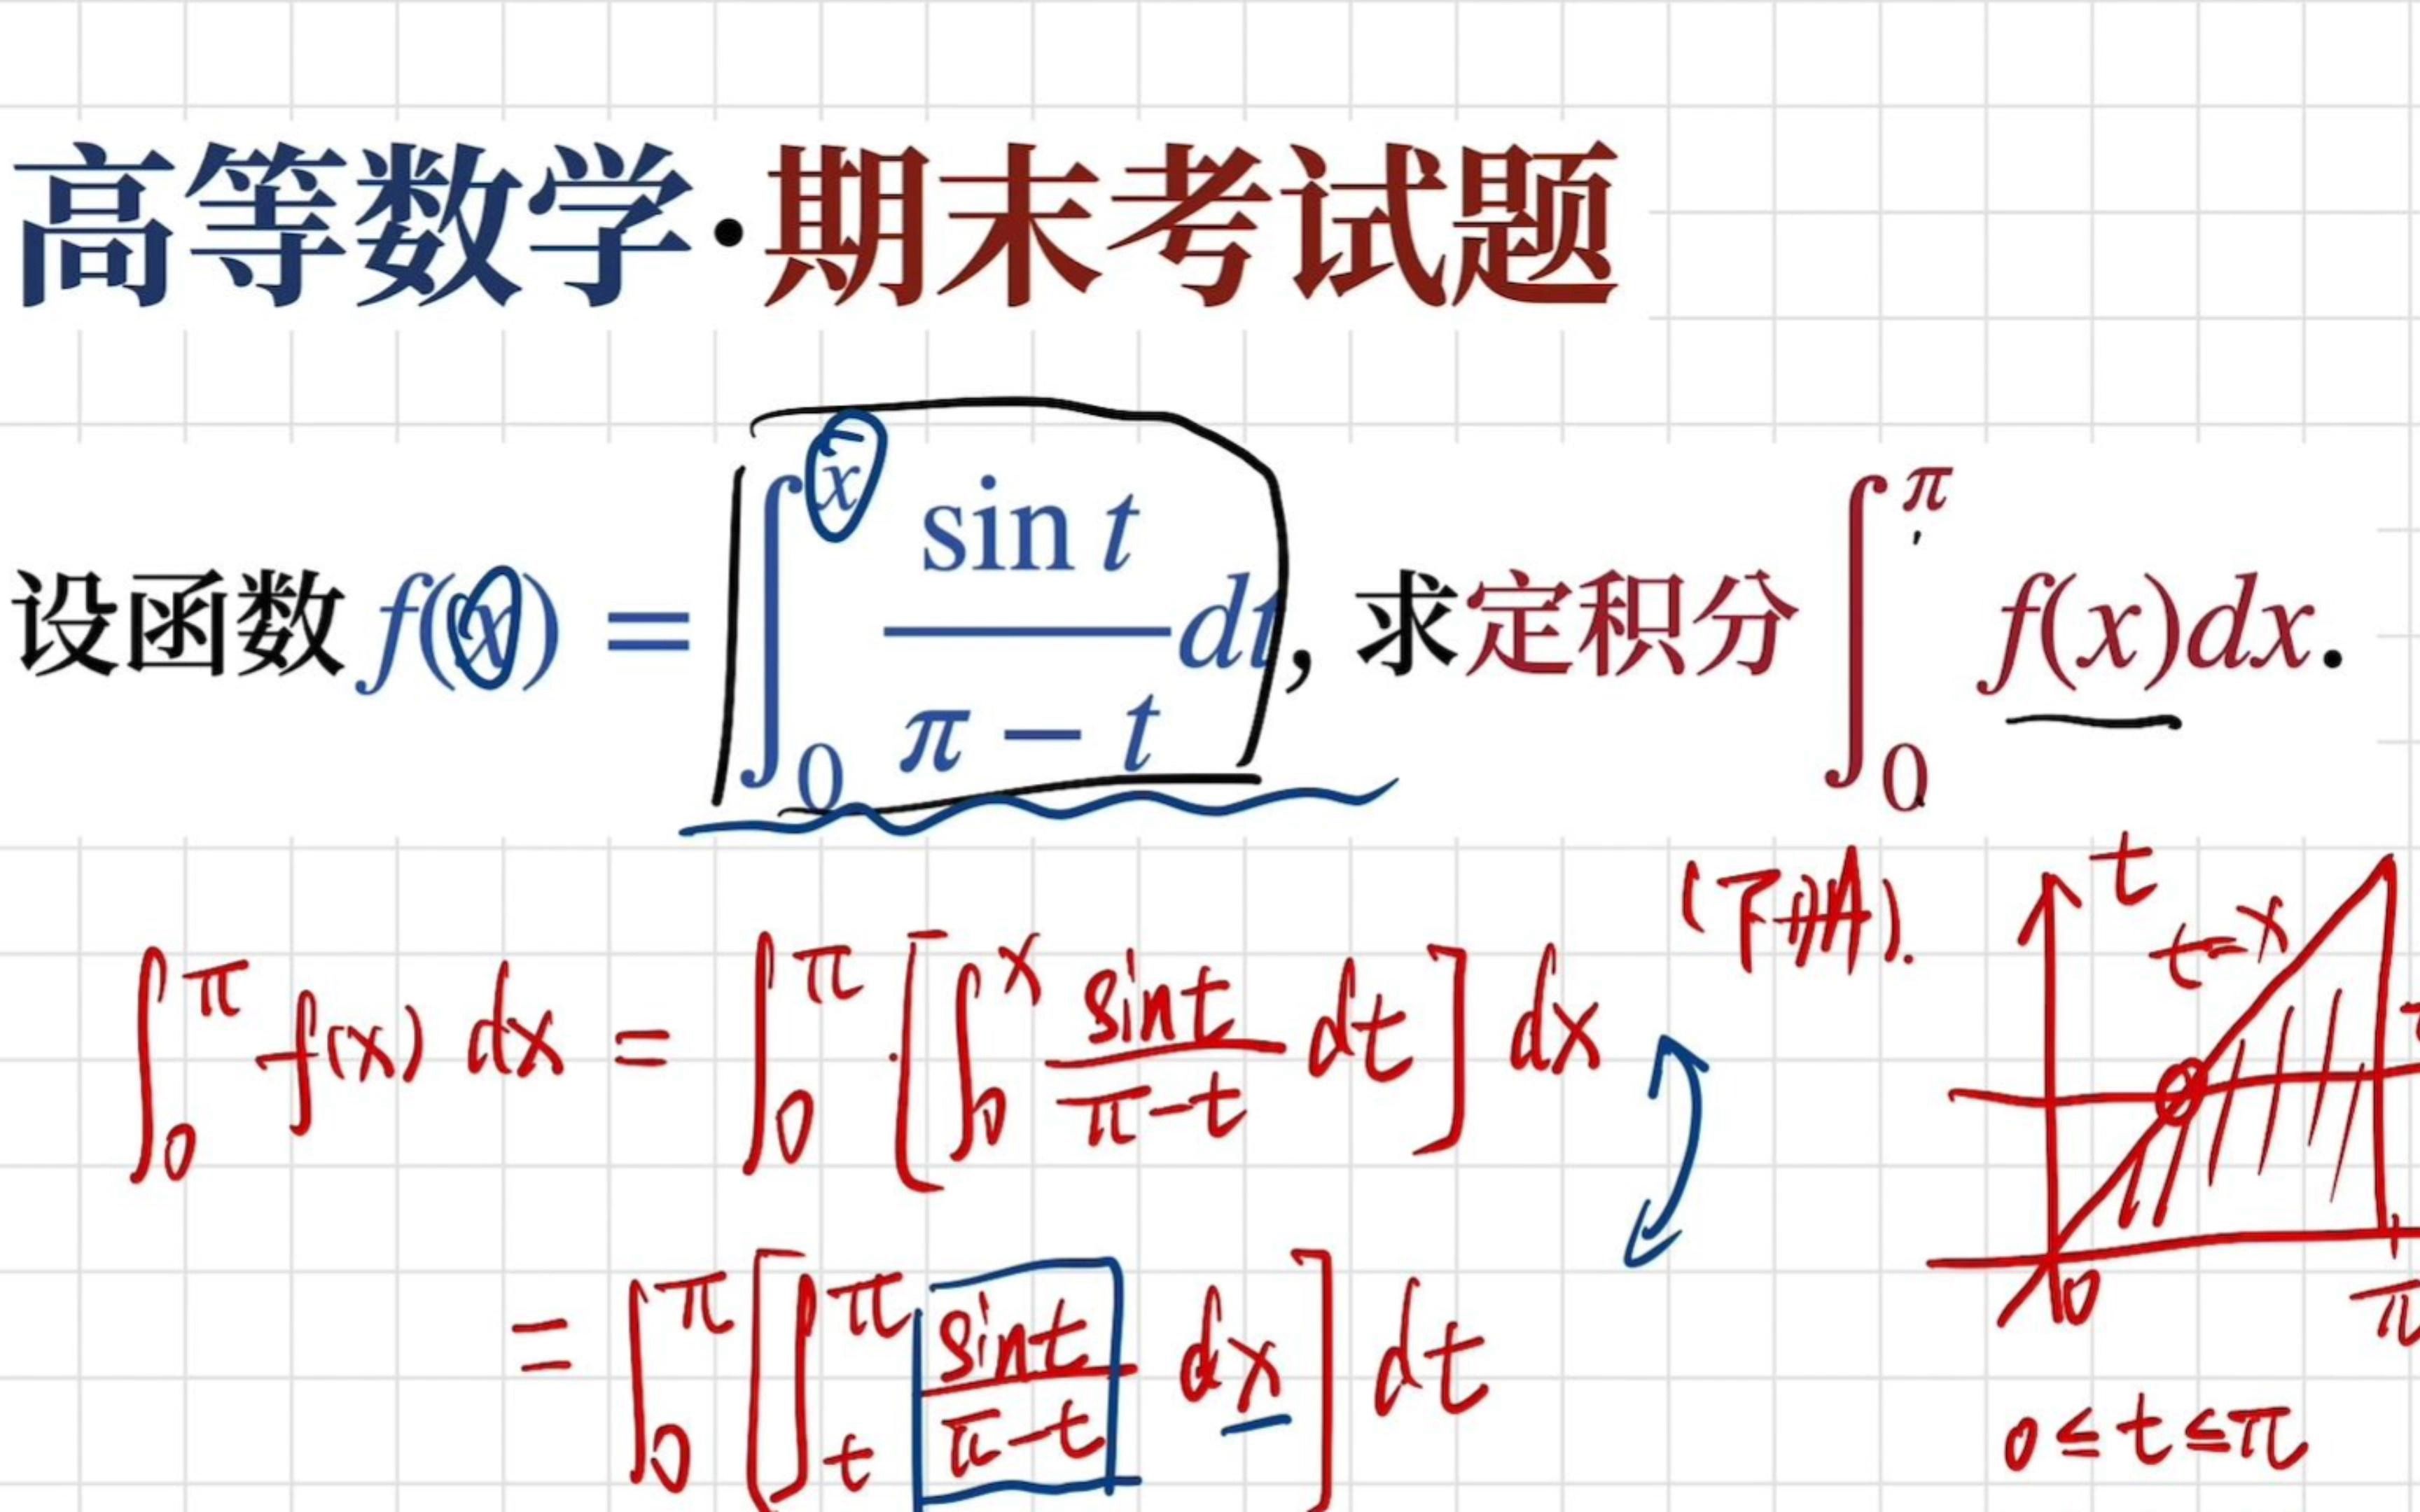 高等数学·期末考试题
设函数 f(x) = ∫₀ˣ sin t / (π − t) dt, 求定积分 ∫₀^π f(x)dx.
(下册).
∫₀^π f(x) dx = ∫₀^π [∫₀ˣ sint / (π−t) dt] dx
= ∫₀^π [∫ₜ^π sint / (π−t) dx] dt
t
t=x
0
π
0 ≤ t ≤ π